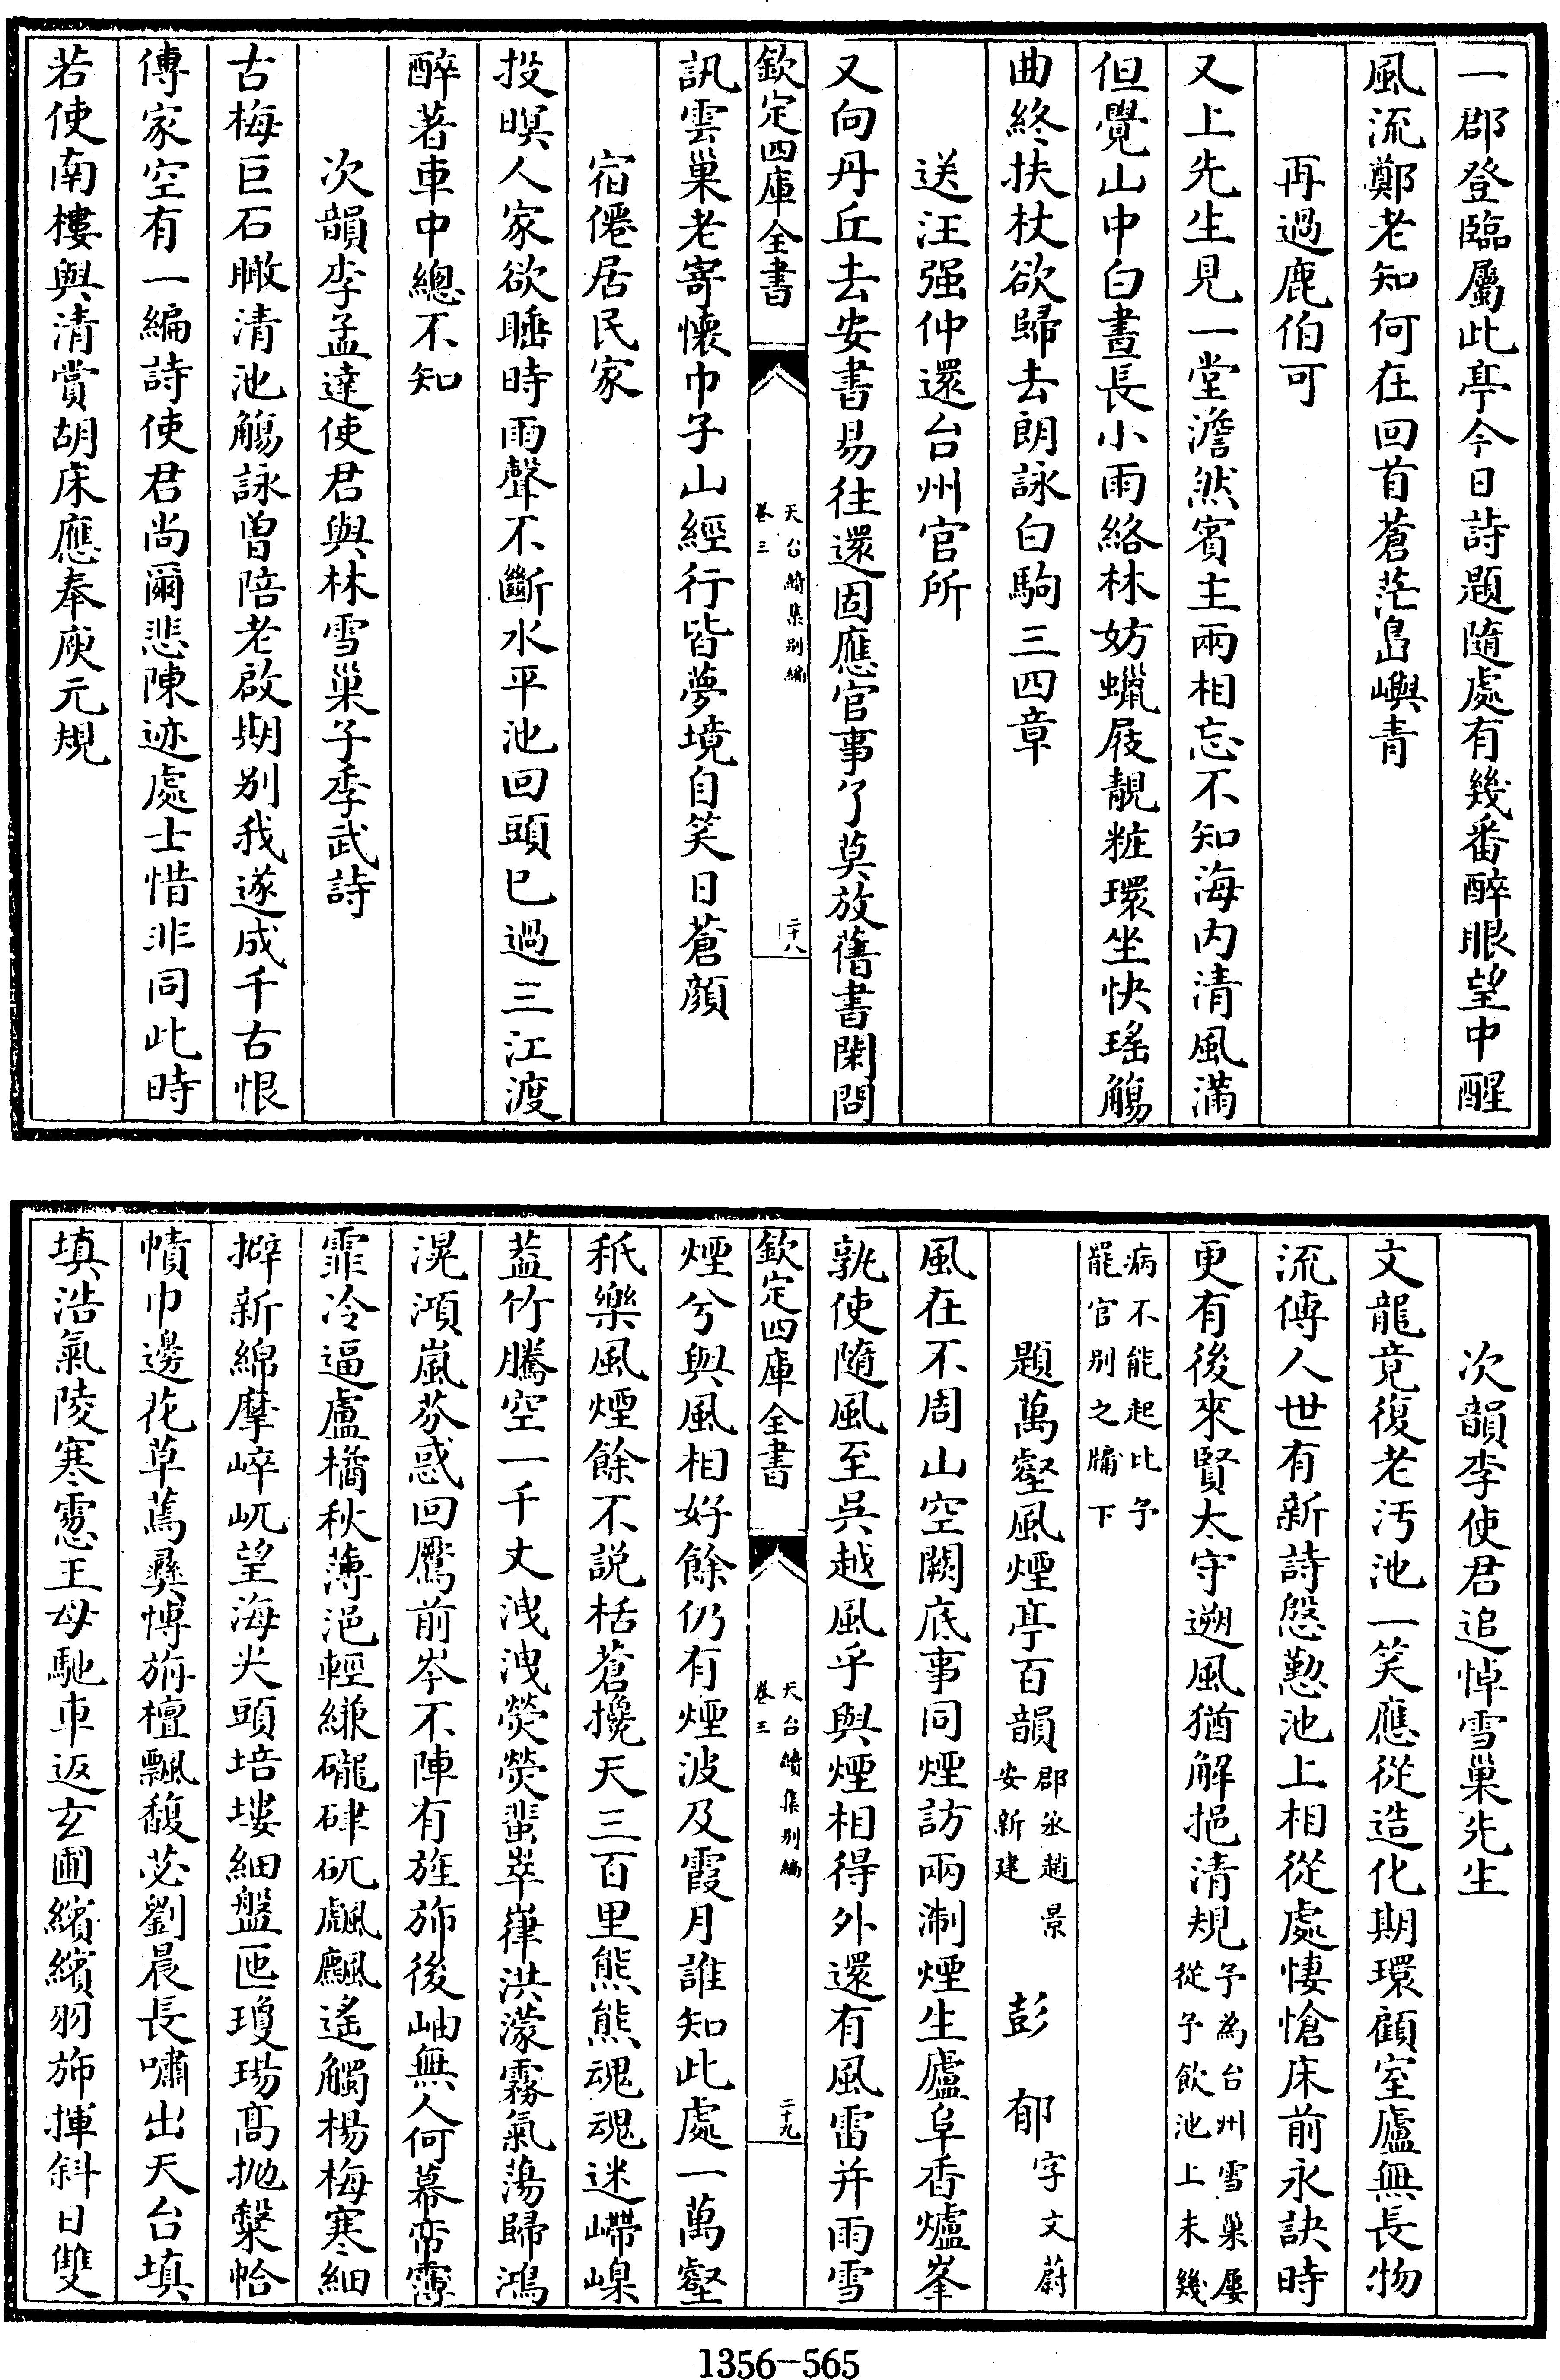 一郡登臨屬此亭今日詩題隨處有幾番醉眼望中醒
風流鄭老知何在回首蒼茫島嶼青
再過鹿伯可
又上先生見一堂澹然賓主兩相忘不知海内清風滿
但覺山中白晝長小雨絡林妨蠟屐靚粧環坐快瑤觴
曲終扶杖欲歸去朗詠白駒三四章
送汪强仲還台州官所
又向丹丘去安書易往還固應官事了莫放舊書閑問
欽定四庫全書
天台續集别編
卷三
二十八
訊雲巢老寄懷巾子山經行皆夢境自笑日蒼顔
宿僊居民家
投暝人家欲睡時雨聲不斷水平池回頭已過三江渡
醉著車中總不知
次韻李孟達使君與林雪巢子季武詩
古梅巨石瞰清池觴詠曽陪老啟期别我遂成千古恨
傳家空有一編詩使君尚爾悲陳迹處士惜非同此時
若使南樓與清賞胡床應奉庾元規
次韻李使君追悼雪巢先生
文龍竟復老汚池一笑應從造化期環顧室廬無長物
流傳人世有新詩慇懃池上相從處悽愴床前永訣時
更有後來賢太守遡風猶解挹清規
予為台州雪巢屢
從予飲池上未幾
病不能起比予
罷官别之牖下
題萬壑風煙亭百韻
郡丞趙景
安新建
彭郁
字文蔚
風在不周山空闕底事同煙訪兩淛煙生廬阜香爐峯
孰使隨風至吳越風乎與煙相得外還有風雷并雨雪
欽定四庫全書
天台續集别編
卷三
二十九
煙兮與風相好餘仍有煙波及霞月誰知此處一萬壑
秖樂風煙餘不説栝蒼攙天三百里熊熊魂魂迷㟼嵲
葢竹騰空一千丈洩洩熒熒蜚崒嵂洪濛霧氣蕩歸鴻
滉澒嵐芬惑回鴈前岑不陣有旌斾後岫無人何幕帟霶
霏冷逼盧橘秋薄浥輕縑礲硉矹飈飄遙觸楊梅寒細
擗新綿摩崪屼望海尖頭培塿細盤匜瓊瑒高抛檠帢
幘巾邊花草蔫彛愽旃檀飄馥苾劉晨長嘯出天台填
填浩氣陵寒窻王母馳車返玄圃繽繽羽斾揮斜日雙
1356-565